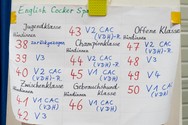 English Cocker Sp
Jugendklasse
Hündinnen
38 zurückgezogen
39 V3
40 V2 CAC (VDH)-R
Zwischenklasse
Hündinnen
41 V1 CAC (VDH)
42 V3
43 V2 CAC (VDH)-R
Championklasse
Hündinnen
44 V2 CAC (VDH)-R
45 V1 CAC (VDH)
Gebrauchshund-
klasse
46 V1 CAC (VDH)
Offene Klasse
Hündinnen
47 V2 CAC (VDH)-R
48 V3
49 V4
50 V1 CAC (VDH)